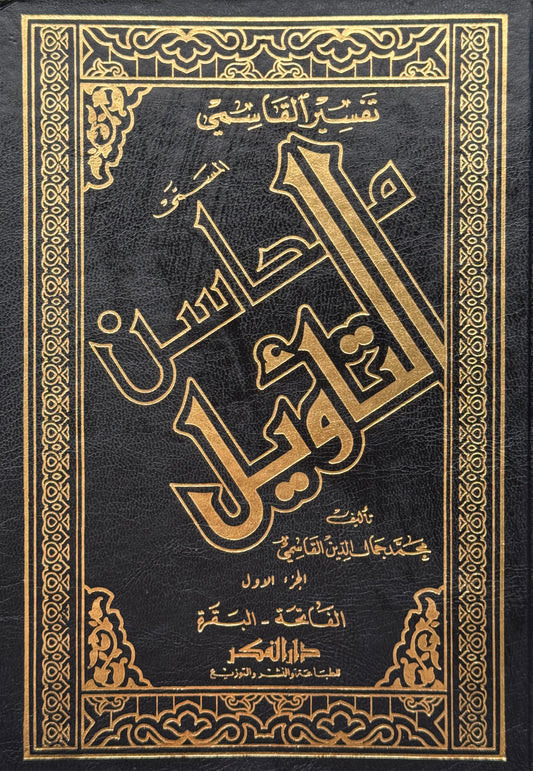 تفسير القاسمي
المسمى
محاسن
التأويل
تأليف
محمد جمال الدين القاسمي
الجزء الاول
الفاتحة - البقرة
دار الفكر
للطباعة والنشر والتوزيع